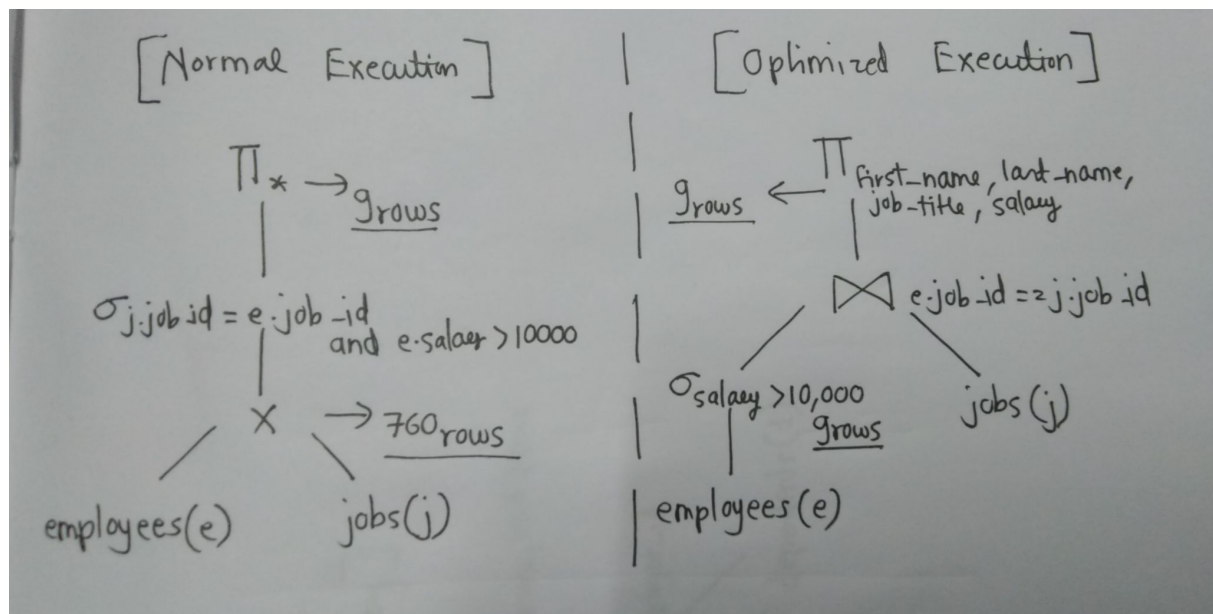 [Normal Execution]
Π * → 9rows
σ j.job_id = e.job_id
and e.salary >10000
X → 760rows
employees(e) jobs(j)
[Optimized Execution]
9rows ← Π first_name, last_name,
job-title, salary
⋈ e.job_id == j.job_id
σ salary >10,000 jobs(j)
9rows
employees(e)